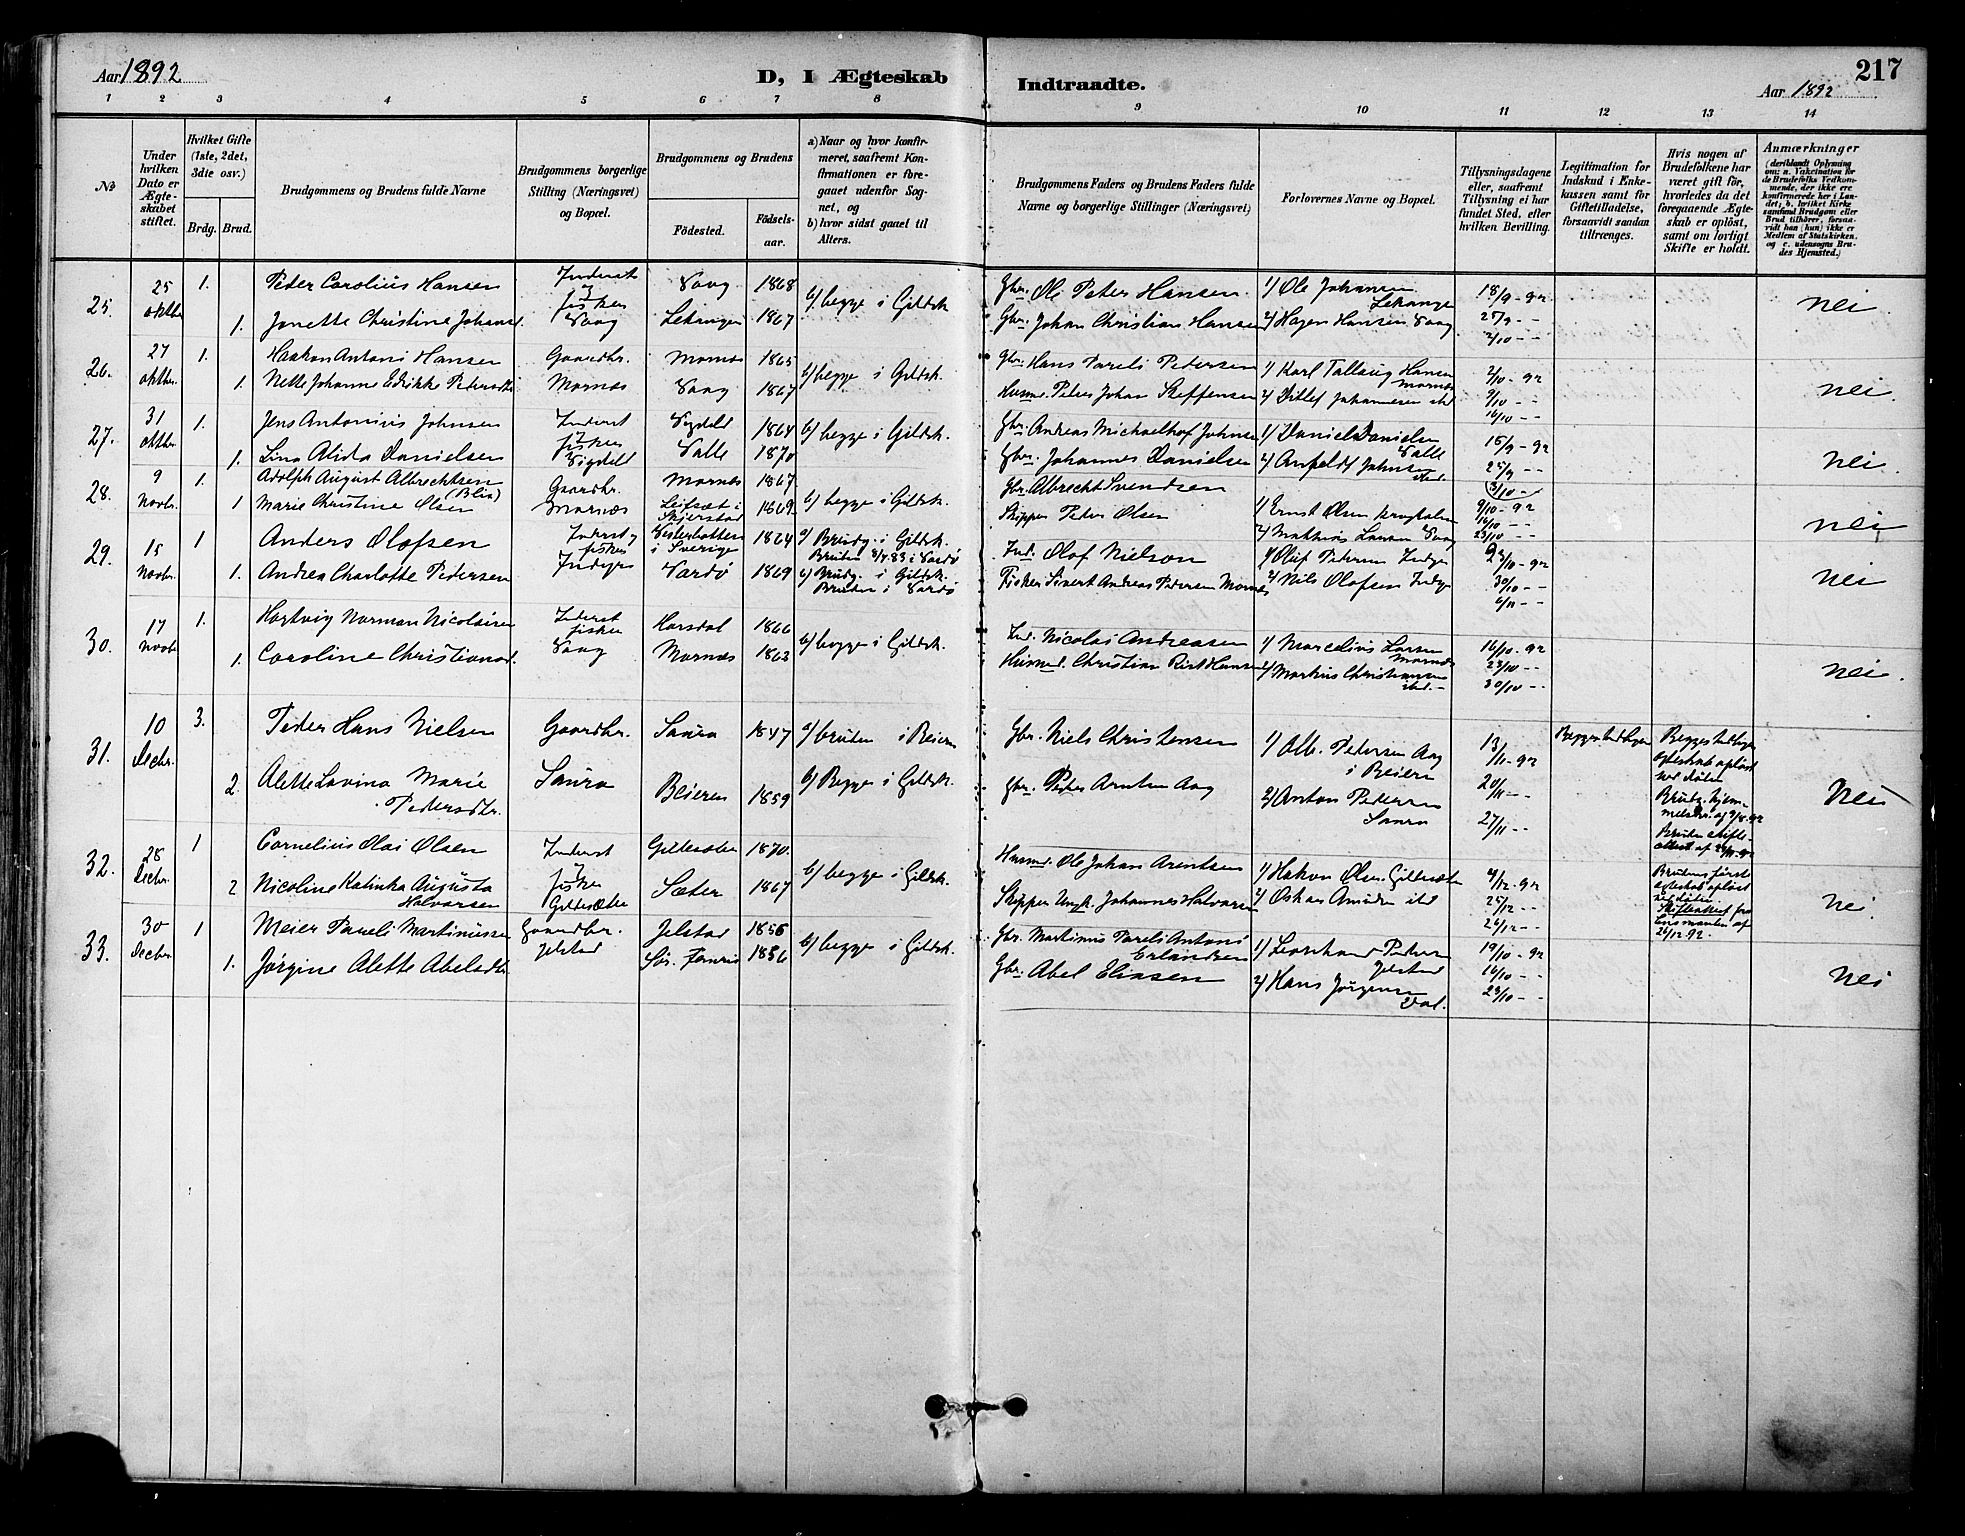 Aar 1892
D, I Ægteskab
Indtraadte.
217
Aar 1892
1 2 3 4 5 6 7 8 9 10 11 12 13 14
No
Under hvilken Dato er Ægteskabet stiftet.
Hvilket Gifte (1ste, 2det, 3die osv.)
Brdg. Brud.
Brudgommens og Brudens fulde Navne
Brudgommens borgerlige Stilling (Næringsvei) og Bopæl.
Brudgommens og Brudens
Födested.
Födselsaar.
a) Naar og hvor konfirmeret, saafremt Konfirmationen er foregaaet udenfor Sognet, og
b) hvor sidst gaaet til Alters.
Brudgommens Faders og Brudens Faders fulde Navne og borgerlige Stillinger (Næringsvei)
Forlovernes Navne og Bopæl.
Tillysningsdagene eller, saafremt Tillysning ei har fundet Sted, efter hvilken Bevilling.
Legitimation for Indskud i Ænkekassen samt for Giftetilladelse, forsaavidt saadan tiltrænges.
Hvis nogen af Brudefolkene har været gift för, hvorledes da det foregaaende Ægteskab er oplöst, samt om lovligt Skifte er holdt.
Anmærkninger
25. 25 oktbr 1. Peder Carolius Hansen Inderst og fisker Vaag Vaag 1868 b/ begge i Gildsk. Gbr. Ole Peter Hansen 1/ Ole Johansen Lekange 18/9-92
1. Jonette Christine Johans. Lekangen 1867 Gbr. Johan Christian Hansen 2/ Hagen Hansen Vaag 25/9 -- 2/10 -- Nei.
26. 27 oktbr. 1. Haakon Antoni Hansen Gaardbr. Mornes Mornes 1865 b/ begge i Gildsk. Gbr. Hans Pareli Pedersen 1/ Karl Hansen Mornes 2/10-92
1. Nette Johanne Edrikke Petersdtr. Vaag 1867 Husmd. Peter Johan Steffensen 2/ Ditlef Johannesen 9/10 -- 16/10 -- Nei.
27. 31 oktbr. 1. Jens Antonius Johnsen Inderst fisker 1864 b/ begge i Gildsk. Gbr. Andreas Johnsen 1/ Daniel Danielsen Valle 18/9-92
1. Lina Alida Danielsen Valle 1870 Gbr. Johannes Danielsen 2/ Anfeldt Johnsen 25/9 -- 2/10 -- Nei.
28. 9 Novbr. 1. Adolph August Albrechtsen (Blix) Gaardbr. Mornæs Mornes 1867 b/ begge i Gildsk. Gbr. Albrecht Svendsen
1 Marie Christine Olsen Leifset i Skjerstad 1869 Skipper Peder Olsen 1/ Ernst Olsen 9/10-92
2/ Mathias Larsen Vaag 16/10 -- 23/10 -- Nei
29. 15 Novbr. 1 Anders Olofsen Inderst og fisker Indyr Vesterbotten i Sverige 1864 a/ Brudg. i Gildsk. Bruden i Vardö Ind. Olof Nielson 1/ Oluf Pedersen Indyr 23/10-92
1. Andrea Charlotte Pedersen Vardø 1869 b/ Brudg. i Gildsk. Bruden i Vardö Fisker Sivert Andreas Pedersen Mornes 2/ Nils Olofsen Indyr 30/10 -- 6/11 -- Nei
30. 17 Novbr 1. Hartvig Norman Nicolaisen Inderst fisker Vaag Horsdal 1866 b/ begge i Gildsk. Ind. Nicolai Andreassen 1/ Marcelius Larsen Mornes 16/10-92
1. Caroline Christiansd. Mornes 1863 Husmd. Christian Hansen 2/ Martius Christiansen 23/10 -- 30/10 -- Nei.
31. 10 Decbr. 3. Peder Hans Nielsen Gaardbr. Saura Saura 1847 a/ bruden i Beiern Gbr. Niels Christensen 1/ Peders​en Aag i Beiern 13/11-92 Begges
2. Alette Lovina Marie Pedersdtr. Beieren 1859 b/ Begge i Gildsk. Gbr. Peder Arntsen Aag 2/ Anton Pedersen Saura 20/11 -- 27/11 -- Nei
32. 28 Decbr. 1 Cornelius Olai Olsen Inderst fisker Gildesæter Gildesæter 1870. b/ begge i Gildsk. Husmd. Ole Johan Arentsen 1/ Hakon Olsen Gildesæter 4/12-92 Brudens förste egteskab oplöst ved döden.
2 Nicoline Katinka Augusta Halvorsen Sæter 1867 Skipper Johannes Halvorsen 2/ Oskar 25/12 -- 26/12 -- Nei
33. 30 Decbr 1 Meier Pareli Martinussen Gaardbr. Jelstad Jelstad 1856 b/ begge i Gildsk. Gbr. Martinus Pareli Antoni Erlandsen 1/ Leonhard Pedersen Jelstad
1. Jörgine Alette Abelsdtr. Sör. 1856 Gbr. Abel Eliasen 2/ Hans Jörgensen 16/10 -- 23/10 -- Nei